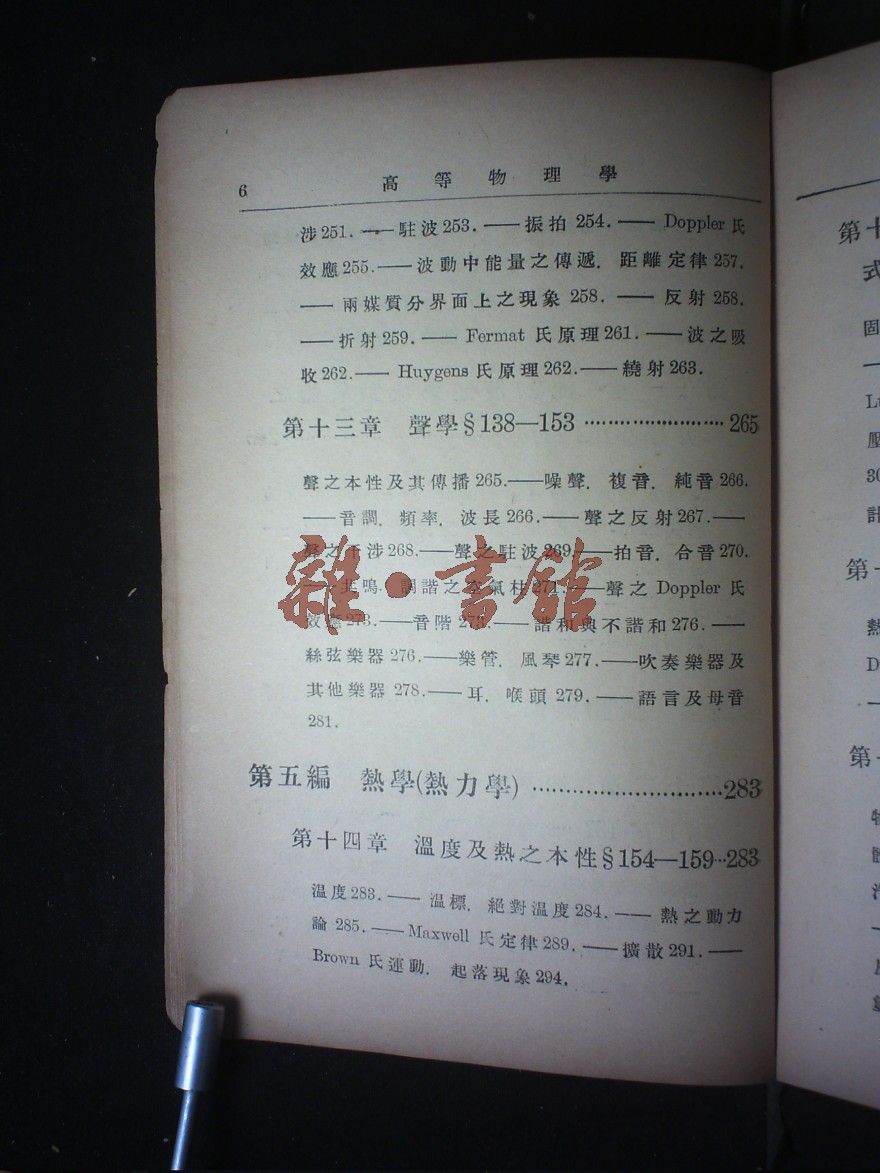 6 高等物理學
涉251.——駐波253.——振拍 254.—— Doppler 氏
效應255.——波動中能量之傳遞．距離定律257.
——兩媒質分界面上之現象 258.—— 反射258.
——折射259.—— Fermat 氏原理261.——波之吸
收262.—— Huygens 氏原理262.——繞射263.
第十三章 聲學§138—153 ························265
聲之本性及其傳播265.——噪聲．複音．純音266.
——音調．頻率．波長266.——聲之反射267.——
聲之干涉268.——聲之駐波269.——拍音．合音270.
——共鳴．調諧之空氣柱271.——聲之 Doppler 氏
效應273.——音階273.——諧和與不諧和276.——
絲弦樂器276.——樂管．風琴277.——吹奏樂器及
其他樂器278.——耳．喉頭279.——語言及母音
281.
第五編 熱學(熱力學) ····························283
第十四章 溫度及熱之本性§154—159···283
溫度283.——溫標．絕對溫度284.——熱之動力
論 285.——Maxwell 氏定律289.——擴散291.——
Brown 氏運動．起落現象294.
雜·書館
第十
式
固
Lu
壓
30
計
第十
熱
D
第十
物